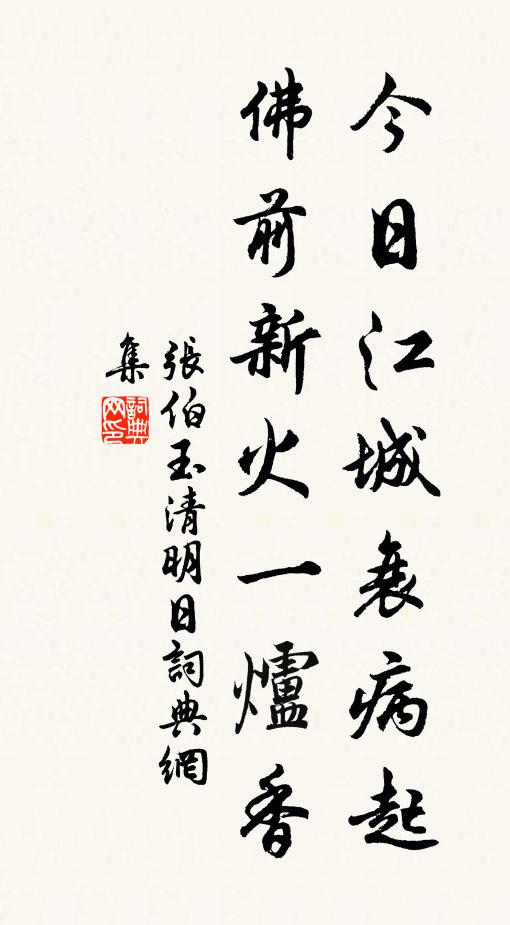 今日江城衰病起
佛前新火一爐香
張伯玉清明日詞典網
集
詞典
网印